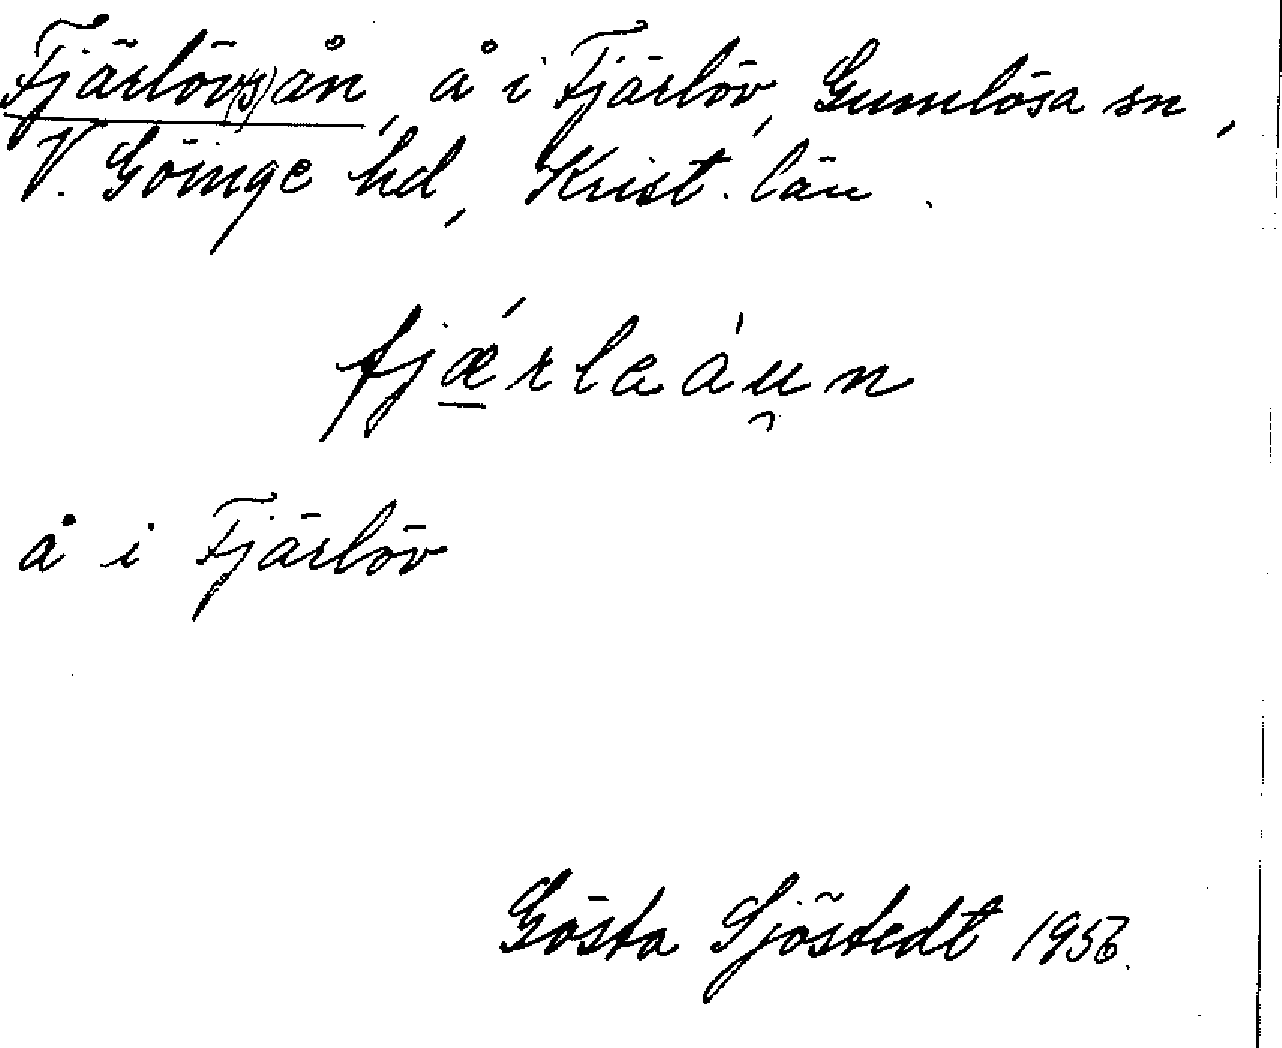 Fjärlöv(s)ån, å i Fjärlöv, Gumlösa sn,
V. Göinge hd, Krist. län.
fjǽ̲rlaáu̯n
å i Fjärlöv
Gösta Sjöstedt 1956.